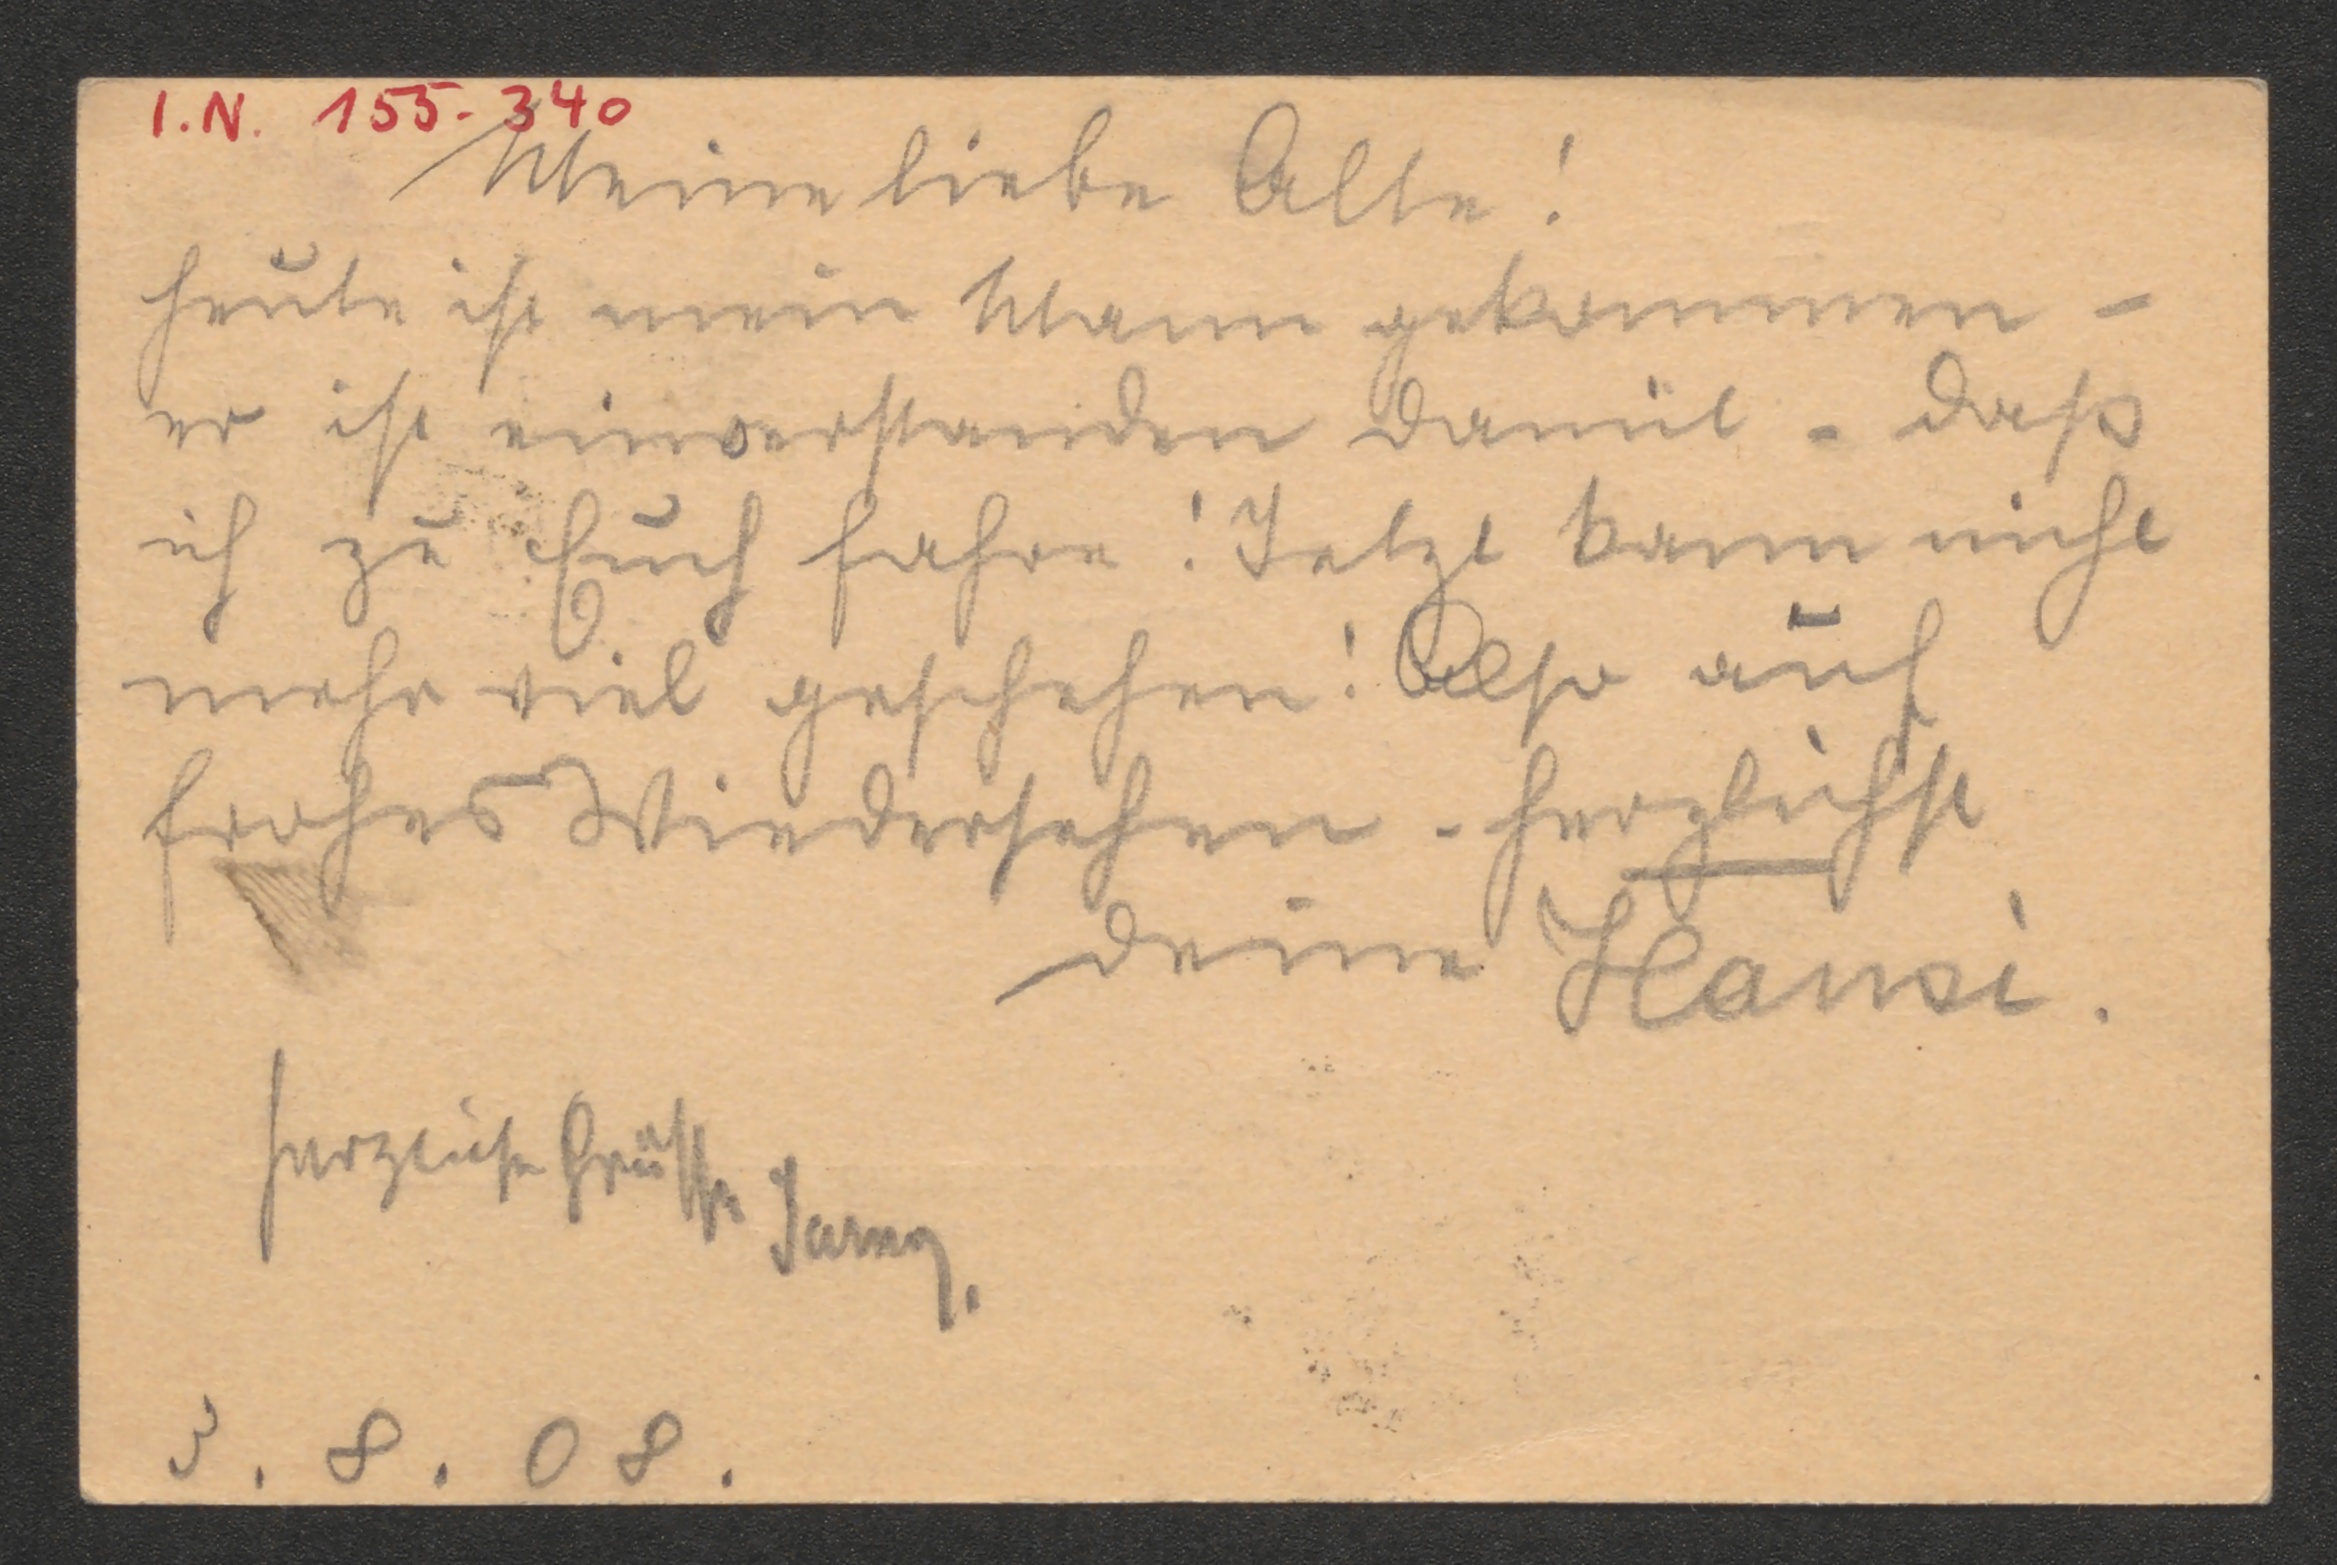 I.N. 155.340
Meine liebe Alte!
heute ist mein Mann gekommen -
er ist einverstanden damit - daß
ich zu Euch fahre! Jetzt kann nicht
mehr viel geschehen! Also auf
frohes Wiedersehen - herzlichst
deine Hansi.
herzliche Grüsse
3.8.08.